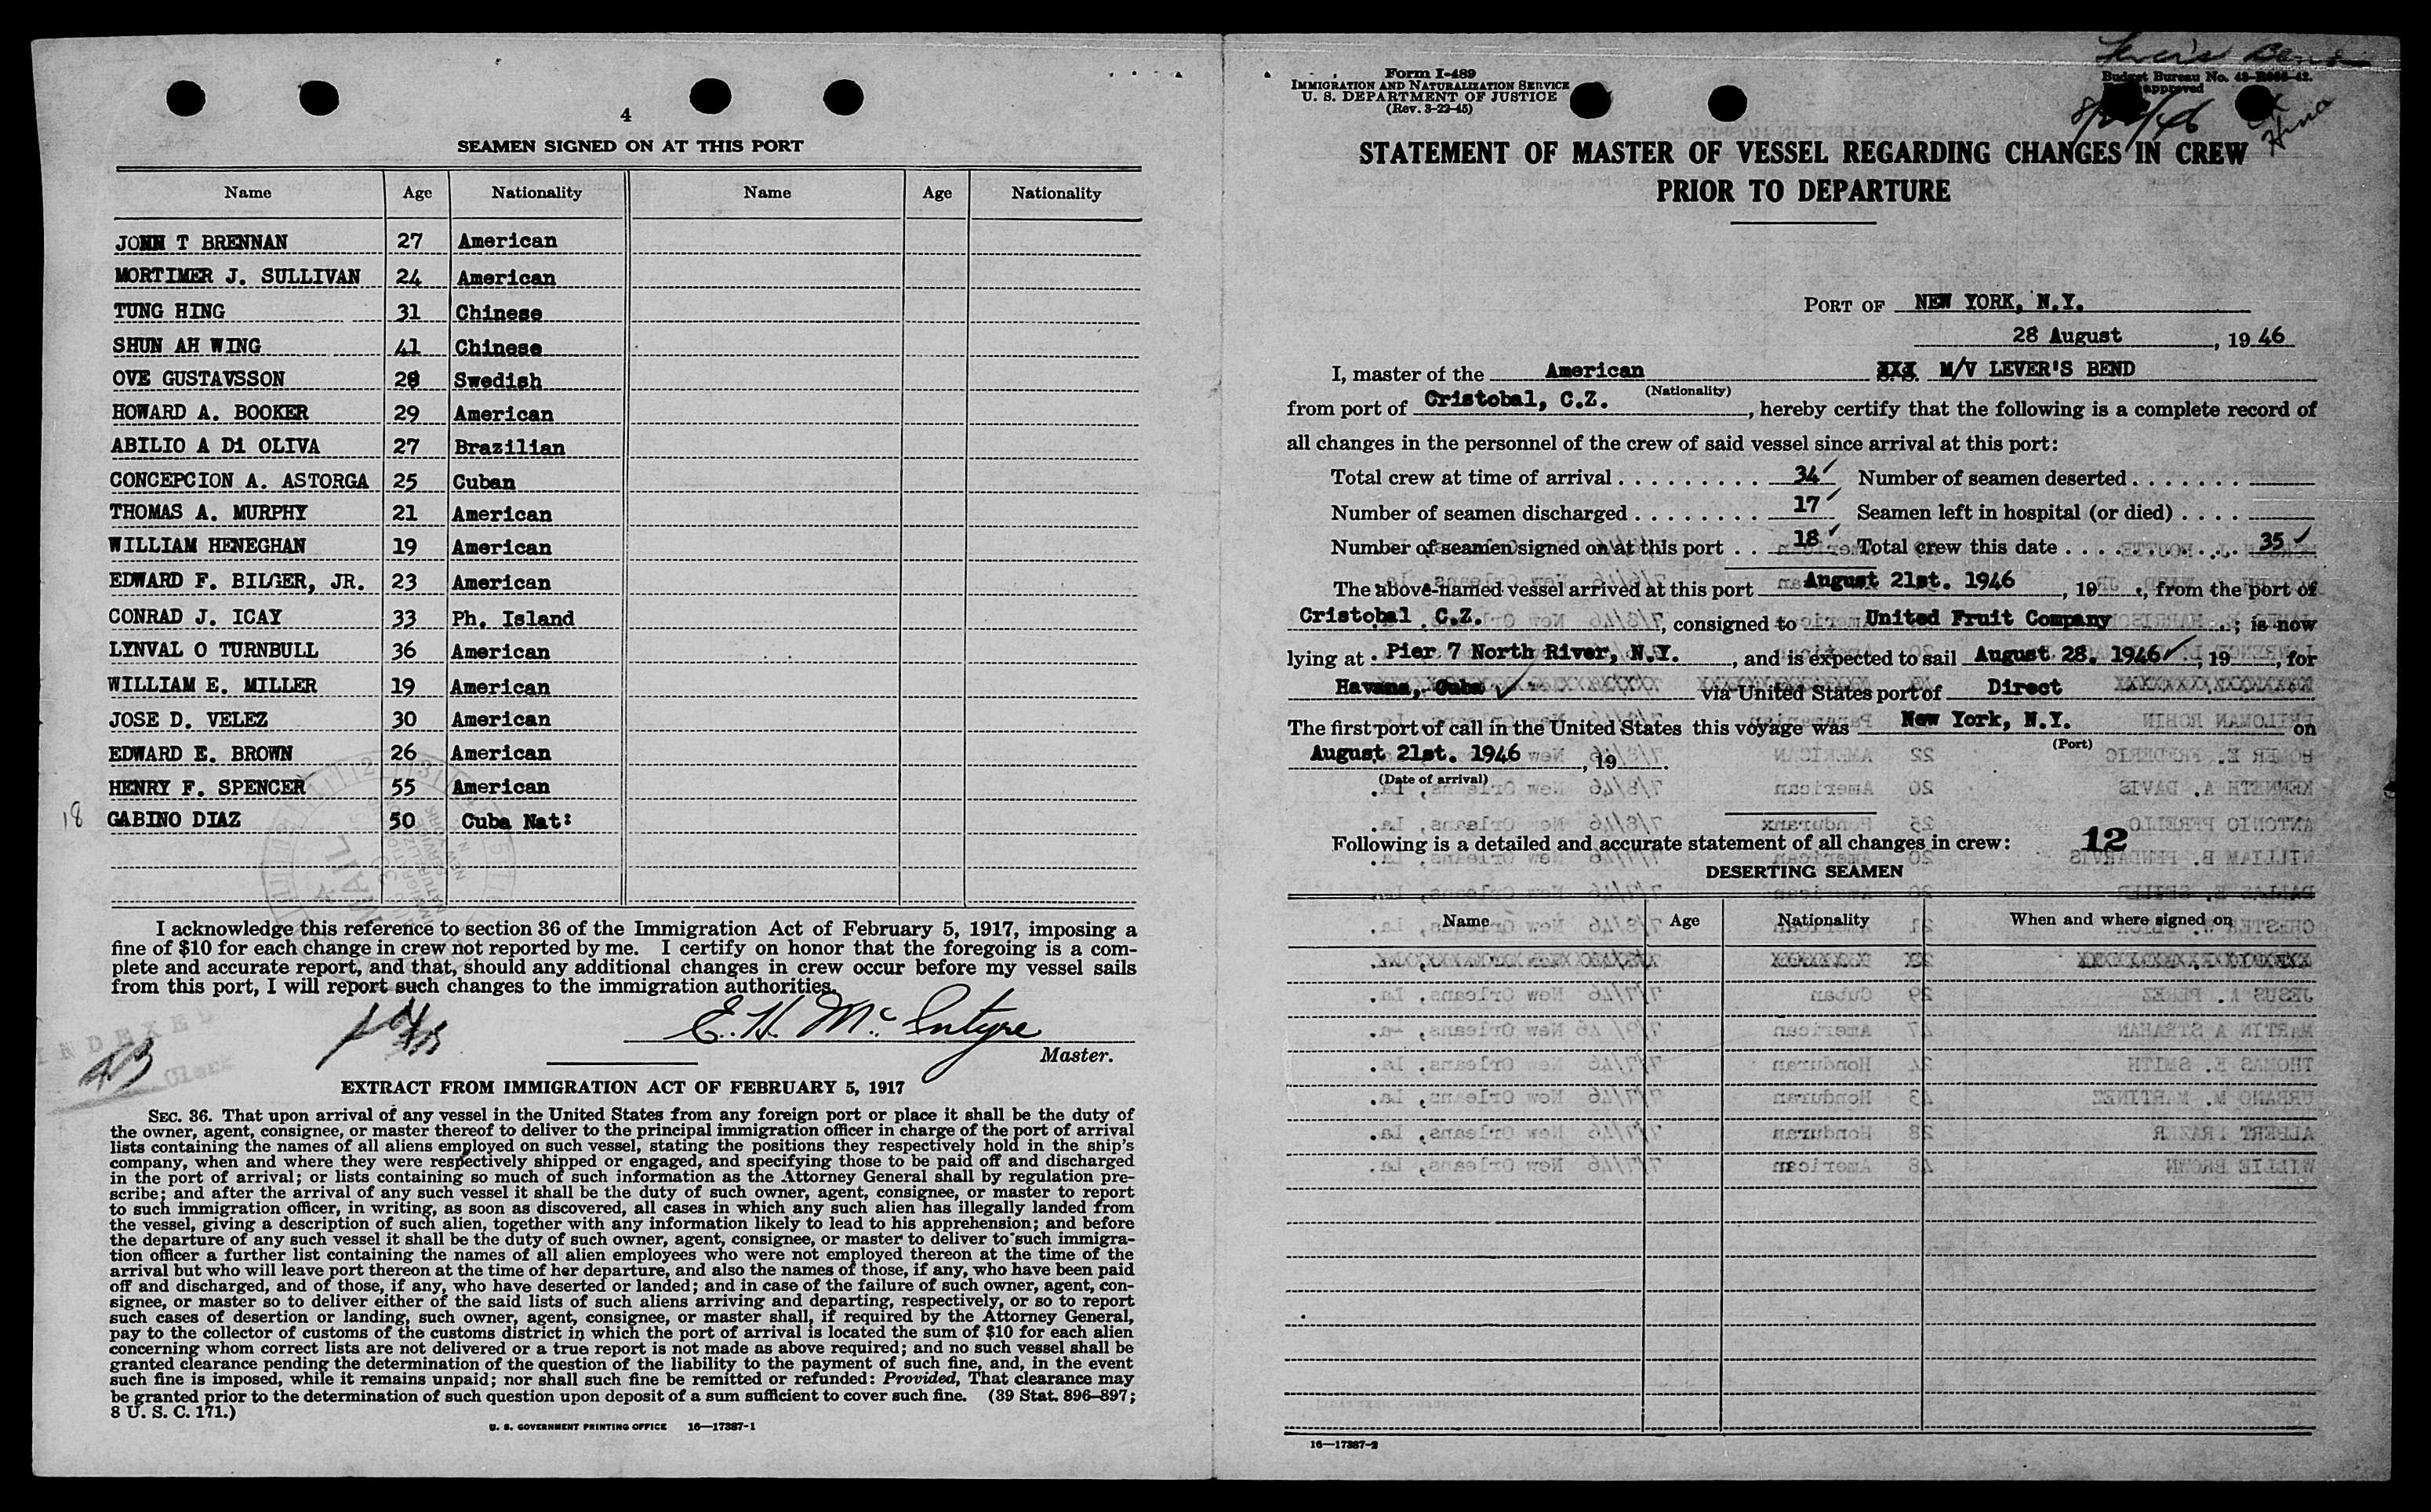 4
SEAMEN SIGNED ON AT THIS PORT
Name Age Nationality Name Age Nationality
JOHN T BRENNAN 27 American
MORTIMER J. SULLIVAN 24 American
TUNG HING 31 Chinese
SHUN AH WING 41 Chinese
OVE GUSTAVSSON 28 Swedish
HOWARD A. BOOKER 29 American
ABILIO A Di OLIVA 27 Brazilian
CONCEPCION A. ASTORGA 25 Cuban
THOMAS A. MURPHY 21 American
WILLIAM HENEGHAN 19 American
EDWARD F. BILGER, JR. 23 American
CONRAD J. ICAY 33 Ph. Island
LYNVAL O TURNBULL 36 American
WILLIAM E. MILLER 19 American
JOSE D. VELEZ 30 American
EDWARD E. BROWN 26 American
HENRY F. SPENCER 55 American
18 GABINO DIAZ 50 Cuba Nat:
I acknowledge this reference to section 36 of the Immigration Act of February 5, 1917, imposing a
fine of $10 for each change in crew not reported by me. I certify on honor that the foregoing is a com-
plete and accurate report, and that, should any additional changes in crew occur before my vessel sails
from this port, I will report such changes to the immigration authorities.
E. H. McIntyre
Master.
INDEXED
Clerk
EXTRACT FROM IMMIGRATION ACT OF FEBRUARY 5, 1917
SEC. 36. That upon arrival of any vessel in the United States from any foreign port or place it shall be the duty of
the owner, agent, consignee, or master thereof to deliver to the principal immigration officer in charge of the port of arrival
lists containing the names of all aliens employed on such vessel, stating the positions they respectively hold in the ship's
company, when and where they were respectively shipped or engaged, and specifying those to be paid off and discharged
in the port of arrival; or lists containing so much of such information as the Attorney General shall by regulation pre-
scribe; and after the arrival of any such vessel it shall be the duty of such owner, agent, consignee, or master to report
to such immigration officer, in writing, as soon as discovered, all cases in which any such alien has illegally landed from
the vessel, giving a description of such alien, together with any information likely to lead to his apprehension; and before
the departure of any such vessel it shall be the duty of such owner, agent, consignee, or master to deliver to such immigra-
tion officer a further list containing the names of all alien employees who were not employed thereon at the time of the
arrival but who will leave port thereon at the time of her departure, and also the names of those, if any, who have been paid
off and discharged, and of those, if any, who have deserted or landed; and in case of the failure of such owner, agent, con-
signee, or master so to deliver either of the said lists of such aliens arriving and departing, respectively, or so to report
such cases of desertion or landing, such owner, agent, consignee, or master shall, if required by the Attorney General,
pay to the collector of customs of the customs district in which the port of arrival is located the sum of $10 for each alien
concerning whom correct lists are not delivered or a true report is not made as above required; and no such vessel shall be
granted clearance pending the determination of the question of the liability to the payment of such fine, and, in the event
such fine is imposed, while it remains unpaid; nor shall such fine be remitted or refunded: Provided, That clearance may
be granted prior to the determination of such question upon deposit of a sum sufficient to cover such fine. (39 Stat. 896–897;
8 U. S. C. 171.)
U. S. GOVERNMENT PRINTING OFFICE 16—17387-1
Lever's Bend
Form I-489
IMMIGRATION AND NATURALIZATION SERVICE
U. S. DEPARTMENT OF JUSTICE
(Rev. 3-22-45)
Budget Bureau No.
approved
STATEMENT OF MASTER OF VESSEL REGARDING CHANGES IN CREW
PRIOR TO DEPARTURE
PORT OF NEW YORK, N.Y.
28 August, 1946
I, master of the American XXX M/V LEVER'S BEND
(Nationality)
from port of Cristobal, C.Z., hereby certify that the following is a complete record of
all changes in the personnel of the crew of said vessel since arrival at this port:
Total crew at time of arrival . . . . . . . . . 34 ✓ Number of seamen deserted . . . . . . .
Number of seamen discharged . . . . . . . . 17 ✓ Seamen left in hospital (or died) . . . .
Number of seamen signed on at this port . . 18 ✓ Total crew this date . . . . . . . . . . 35 ✓
The above-named vessel arrived at this port August 21st. 1946, 19 , from the port of
Cristobal C.Z., consigned to United Fruit Company; is now
lying at Pier 7 North River, N.Y., and is expected to sail August 28. 1946 ✓, 19 , for
Havana, Cuba ✓ via United States port of Direct
The first port of call in the United States this voyage was New York, N.Y. on
(Port)
August 21st. 1946, 19 .
(Date of arrival)
Following is a detailed and accurate statement of all changes in crew: 12
DESERTING SEAMEN
Name Age Nationality When and where signed on
16—17387-2